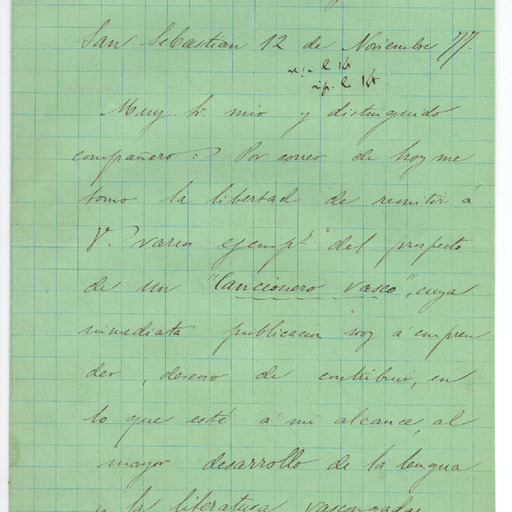 San Sebastian 12 de Noviembre 77.
rip. le Kt
Muy Sr mio y distinguido
compañero: Por correo de hoy me
tomo la libertad de remitir á
V. varios ejemps del prospecto
de un "Cancionero vasco", cuya
inmediata publicacion voy a empren
der, deseoso de contribuir, en
lo que esté á mi alcance, al
mayor desarrollo de la lengua
y la literatura vascongadas